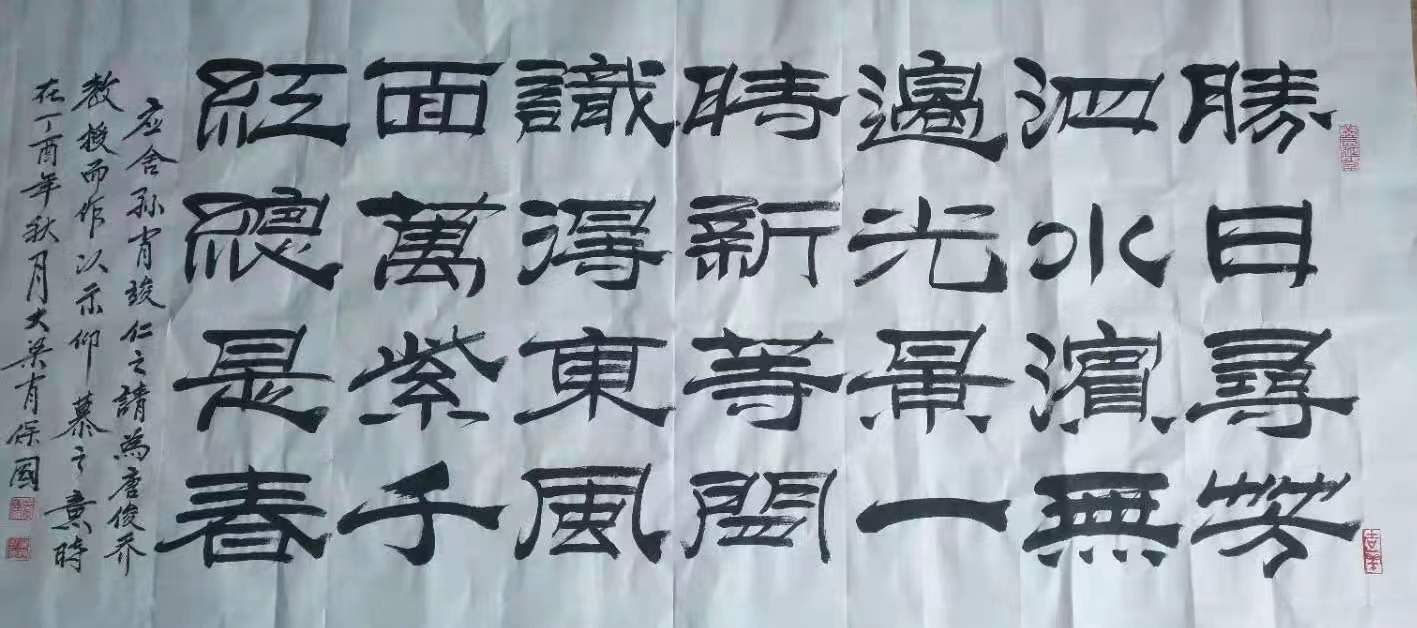 勝日尋芳
泗水濱無
邊光景一
時新等閒
識得東風
面萬紫千
紅總是春
应舍孙肖竣仁之請為唐俊乔
教授而作以示仰慕之意時
在丁酉年秋月大梁肖保國